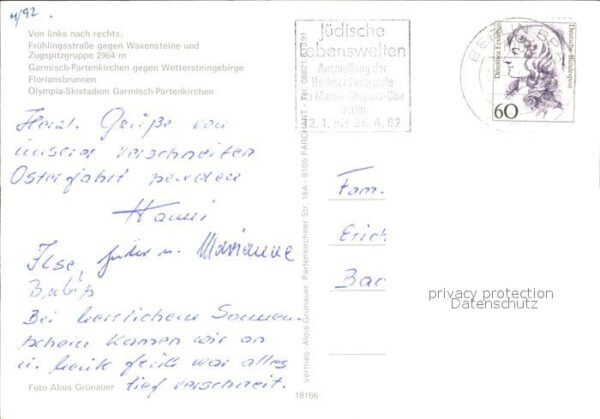 4/92.
Von links nach rechts:
Frühlingsstraße gegen Waxensteine und
Zugspitzgruppe 2964 m
Garmisch-Partenkirchen gegen Wettersteingebirge
Floriansbrunnen
Olympia-Skistadion Garmisch-Partenkirchen
Herzl. Grüße von
unserer verschneiten
Osterfahrt senden
Hanni
Ilse, u. Marianne
Bei herrlichem Sonnen-
schein kamen wir an
u. heute früh war alles
tief verschneit.
Foto Alois Grünauer
18166
Vertrieb: Alois Grünauer, Partenkirchner Str. 18A - 8105 FARCHANT - Tel. 08821/61391
Jüdische
Lebenswelten
Ausstellung der
Berliner Festspiele
im Martin-Gropius-Bau
Berlin
12.1. bis 26.4.92
BERLIN
Dorothea Erxleben
Deutsche Bundespost
60
Fam.
Erich
Bac
privacy protection
Datenschutz